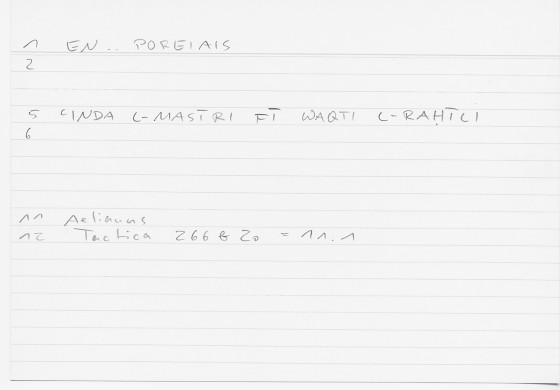 1 EN.. POREIAIS
2
5 ʿINDA L-MASĪRI FĪ WAQTI L-RAḤĪLI
6
11 Aelianus
12 Tactica 266 B 20 = 11.1